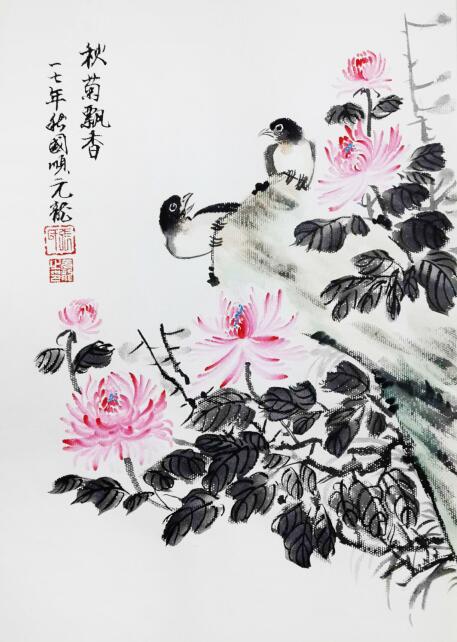 秋菊飄香
一七年國順元龍